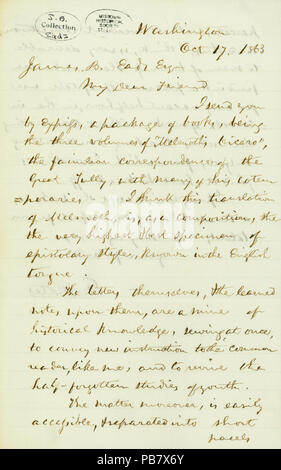 J. B. Eads Collection
MISSOURI HISTORICAL SOCIETY
Washington
Oct 17, 1863
James B. Eads Esq
My dear Friend
I send you
by Express, a package of books, being
the three volumes of "Melmoth's Cicero",
the familiar correspondence of the
Great Tully, with many of his cotem
=poraries. I think this translation
of Melmoth, is, as a composition, the
the very highest best specimen of
epistolary styles, known in the English
tongue.
The letters themselves, the learned
notes upon them, are a mine of
historical knowledge, serving at once,
to convey new instruction to the common
reader, like me, and to revive the
half-forgotten studies of youth.
The matter moreover, is easily
accessible, separated into short
parcels
alamy
alamy
Image ID: PB7X6Y
www.alamy.com